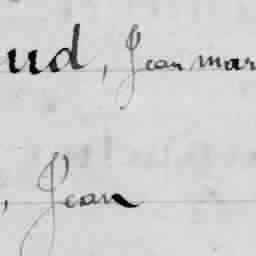 ud, Jean mar
, Jean